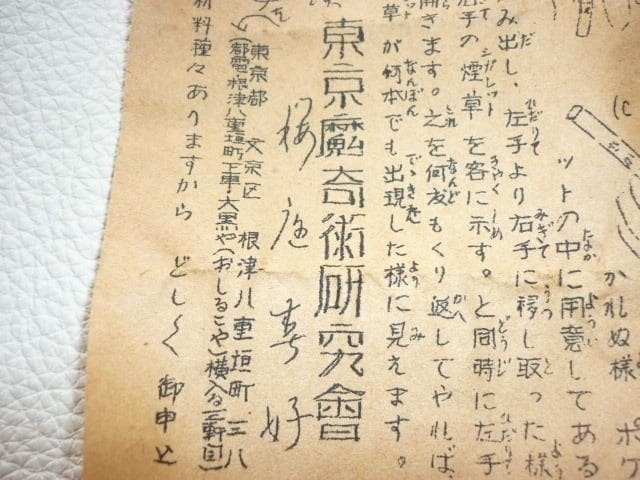 かれぬ様 ポケ
ットの中に用意してある
み出し、左手より右手に移し取った様
左手の煙草を客に示す。と同時に左手
開きます。之を何度もくり返してやれば、
草が何本でも出現した様に見えます。
東京魔奇術研究會
春好
東京都 文京区 根津八重垣町 三八
(都電根津八重垣町下車・大黒や(おしるこや)横入る三軒目)
材料種々ありますから どし〱 御申